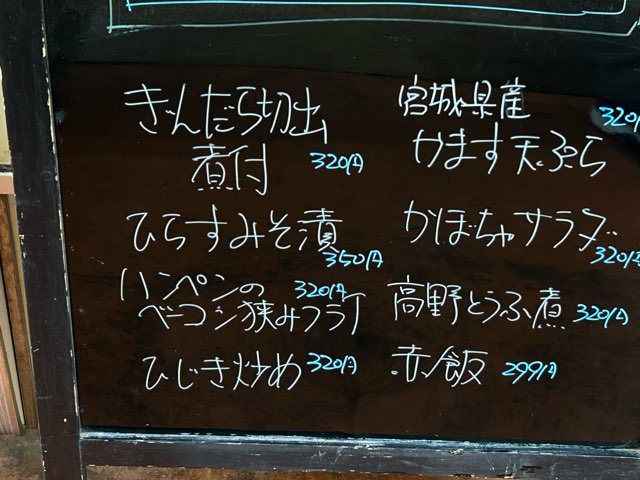 ぎんだら切出
煮付 320円
ひらすみそ漬
350円
ハンペンの 320円
ベーコン狭みフライ
ひじき炒め 320円
宮城県産
320円
かます天ぷら
かぼちゃサラダ
320円
高野とうふ煮 320円
赤飯 299円